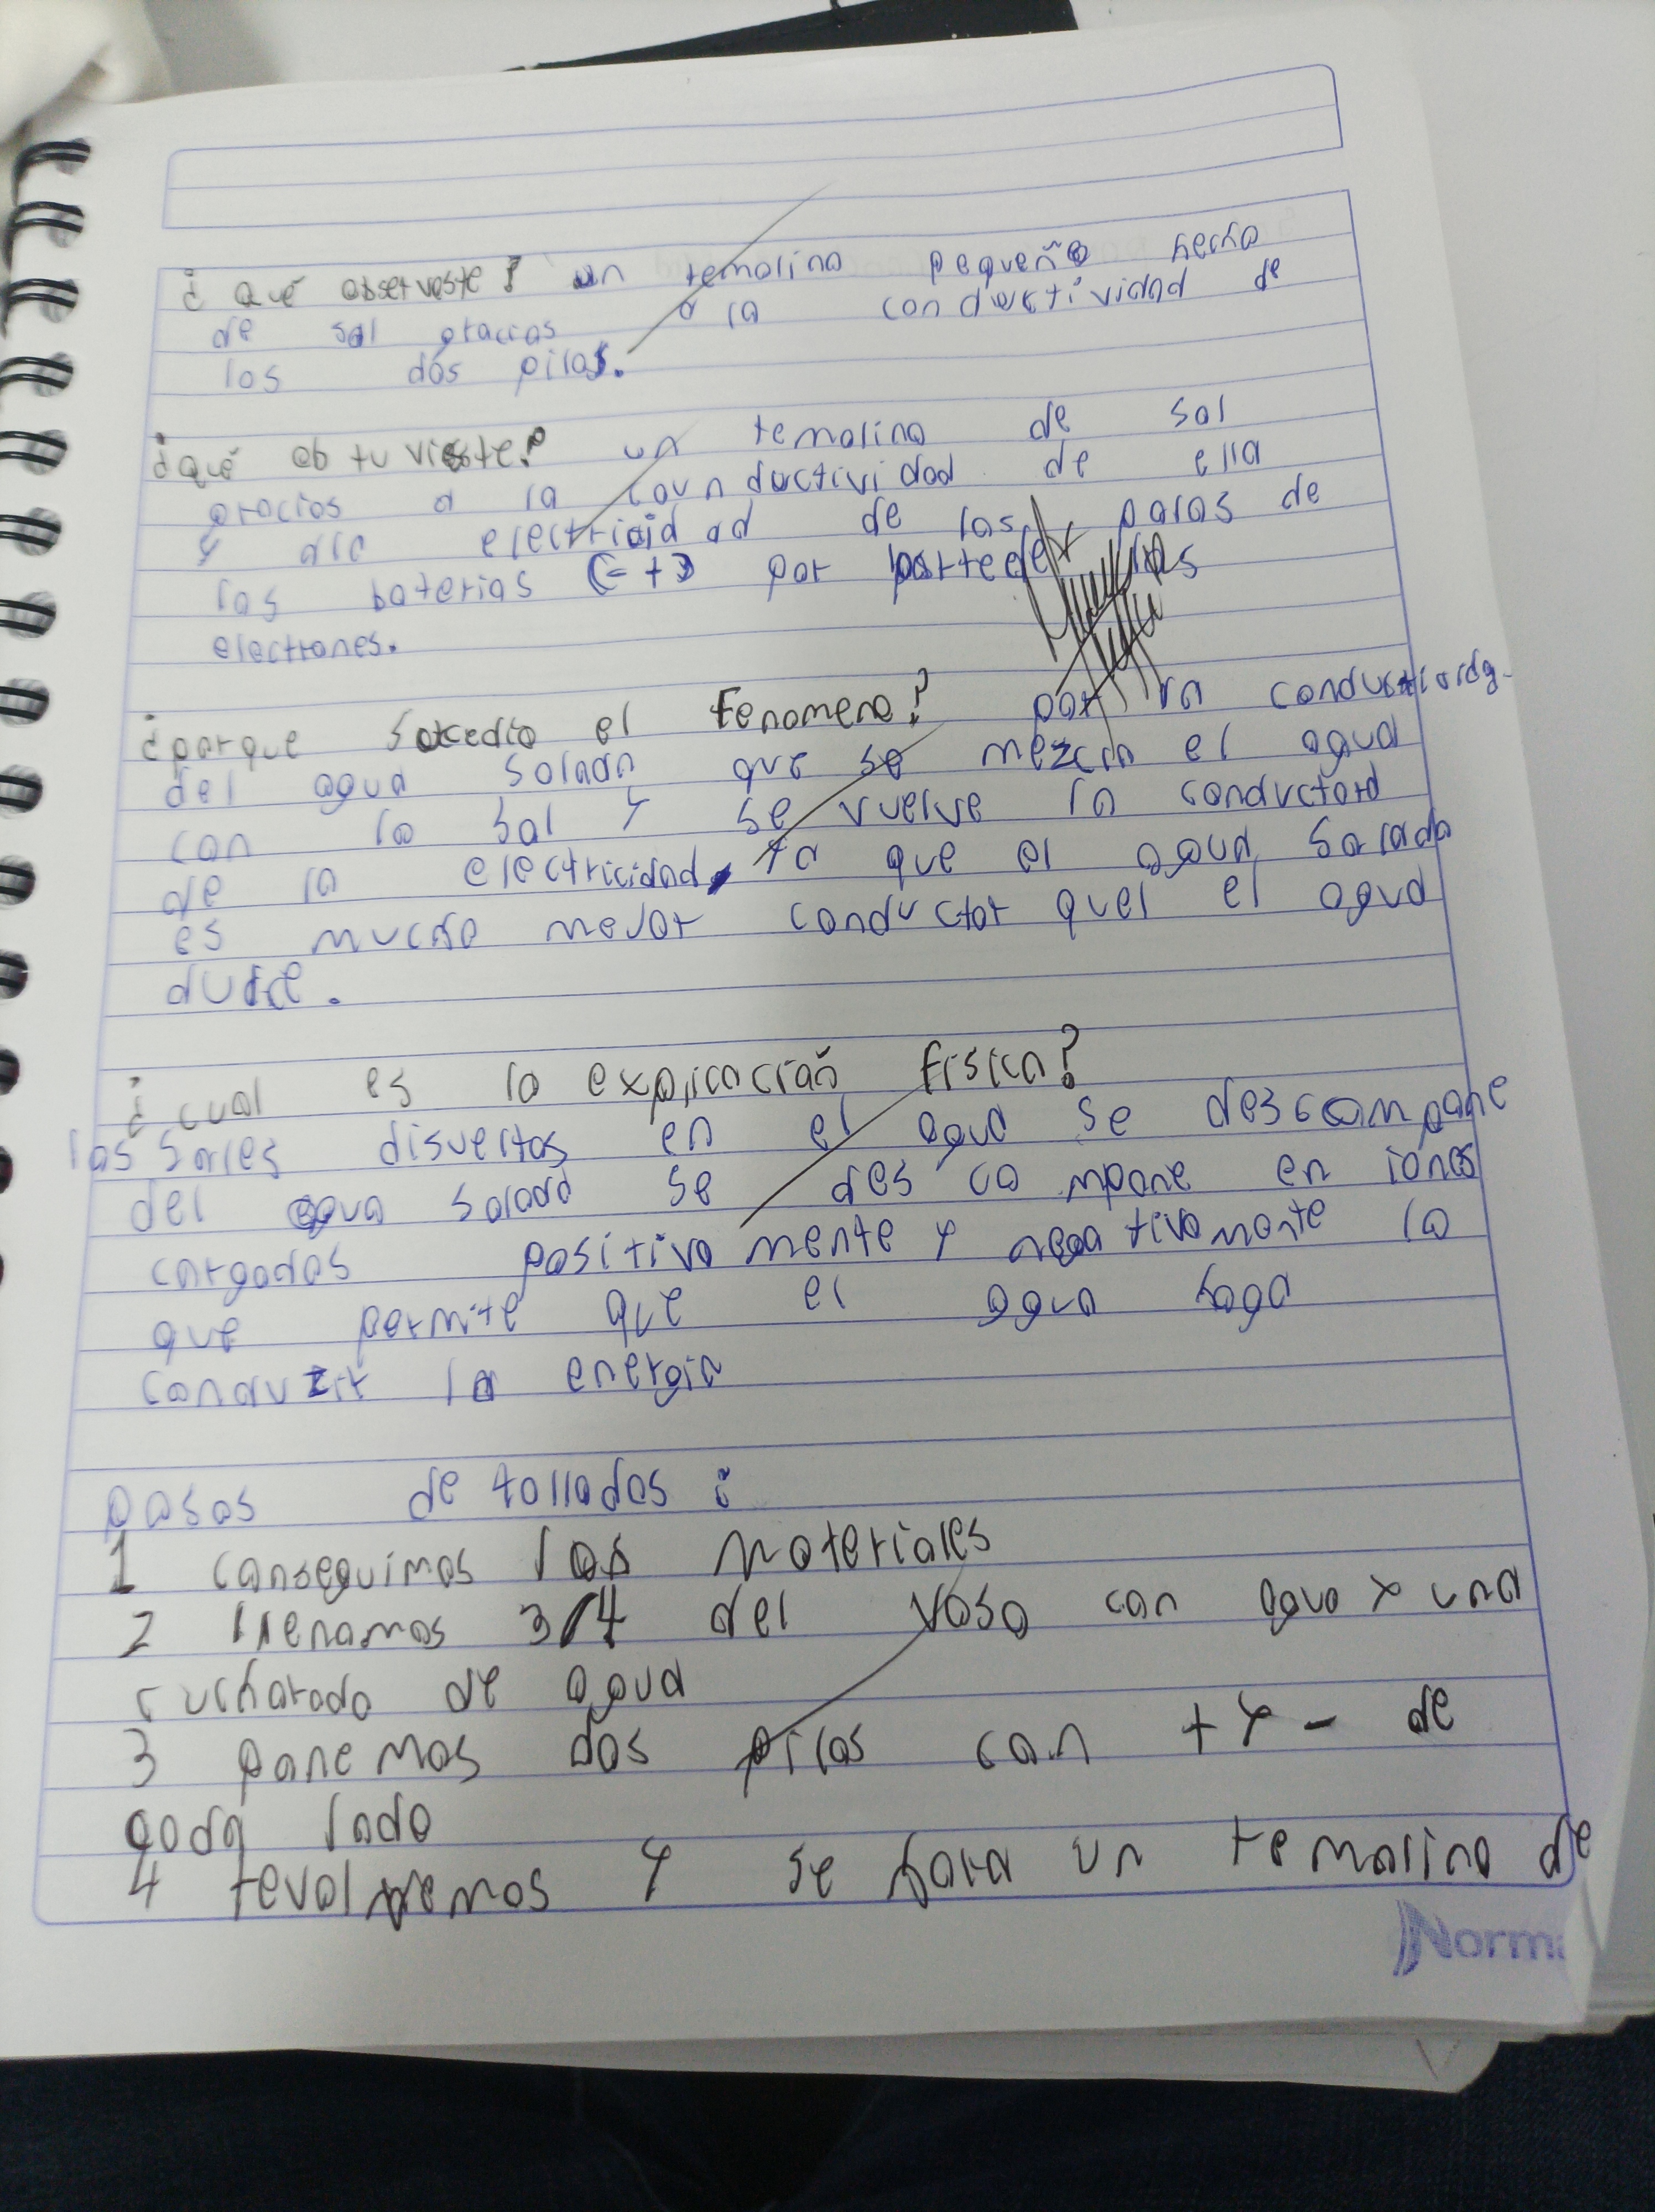 ¿ qué observaste? un remolino pequeño hecho
de sal gracias a la conductividad de
las dos pilas.
¿qué obtuvieste? un remolino de sal
gracias a la counductividad de ella
y ala electricidad de los polos de
las baterias (- +) por parte de los
electrones.
¿porque sucedio el Fenomeno? por la
del agua salada que se mezcla el agua
con la sal y se vuelve la conductora
de la electricidad, ya que el agua salada
es mucho mejor conductor quel el agua
dulce.
¿cual es la explicación Fisica?
las sales disueltas en el agua se descompone
del agua salada se des compone en iones
cargados positivamente y negativamente lo
que permite que el agua haga
conduzir la energia
pasos detallados :
1 conseguimos los materiales
2 llenamos 3/4 del vaso con agua y una
cucharada de agua
3 ponemos dos pilas con + y - de
coda lado
4 revolvemos y se hara un remolino de
Norma